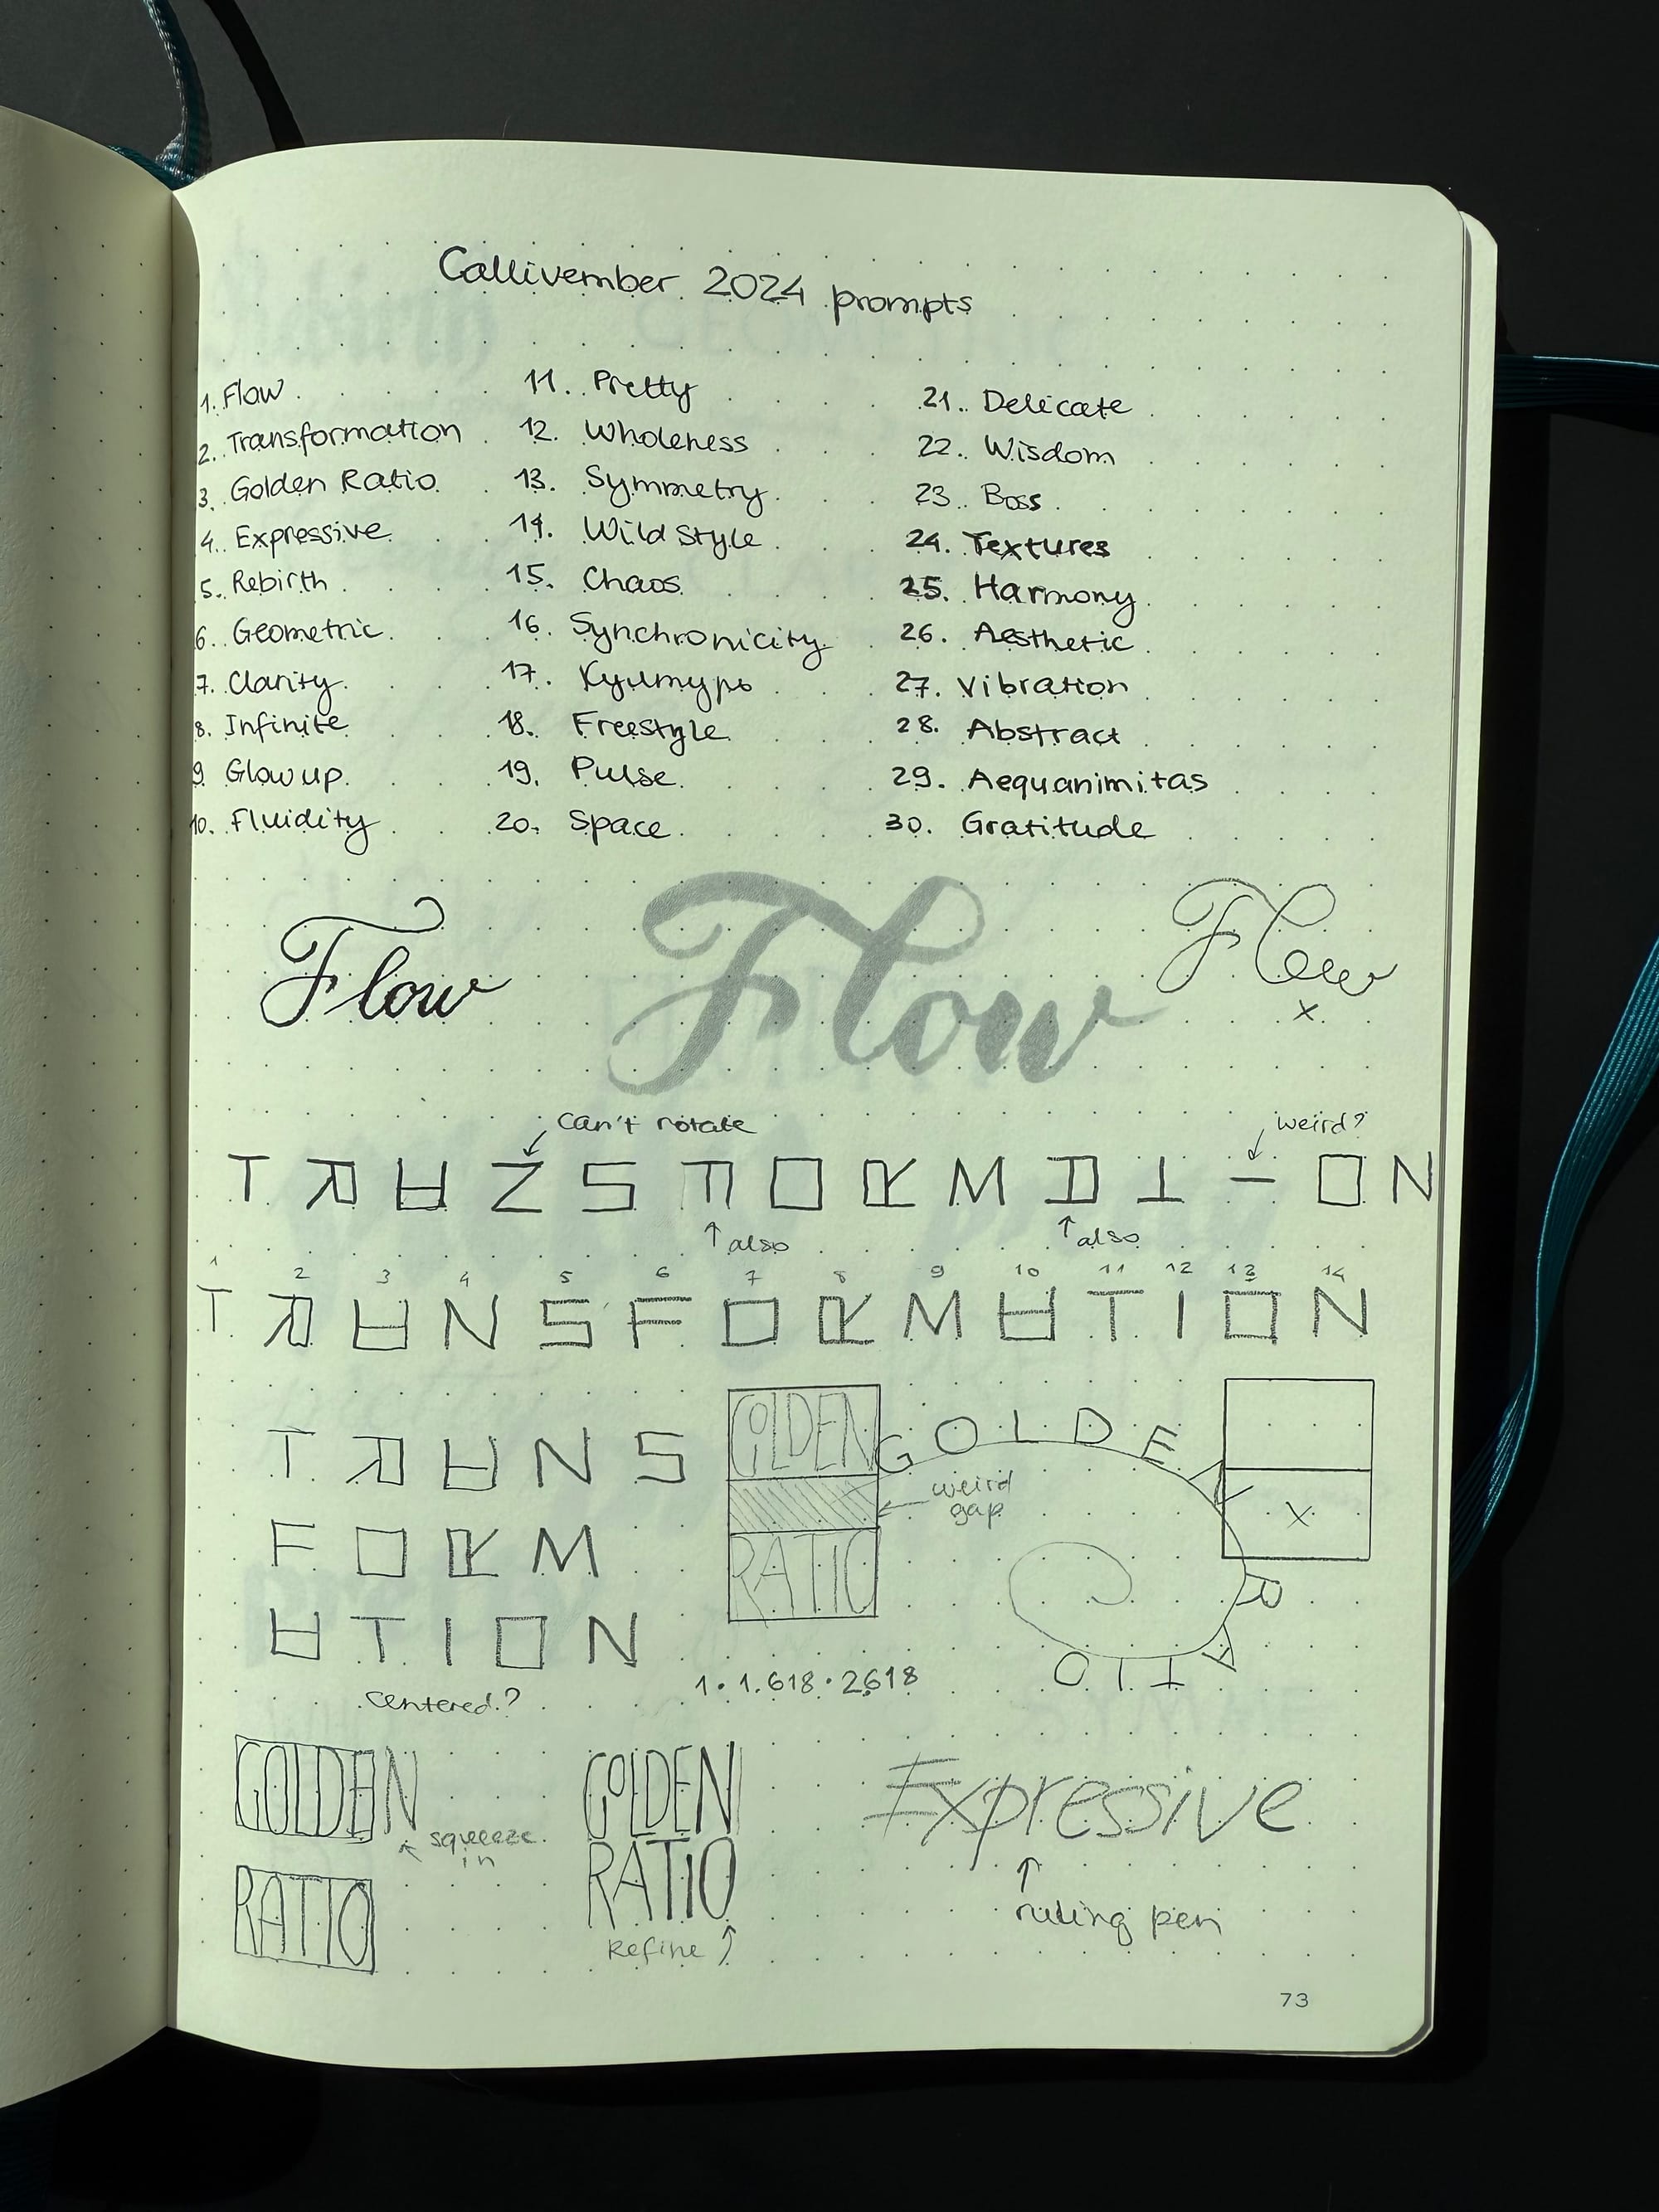 Callivember 2024 prompts
1. Flow
2. Transformation
3. Golden Ratio
4. Expressive
5. Rebirth
6. Geometric
7. Clarity
8. Infinite
9 Glow up
10. Fluidity
11. Pretty
12. Wholeness
13. Symmetry
14. Wild Style
15. Chaos
16. Synchronicity
17. Културъ
18. Freestyle
19. Pulse
20. Space
21. Delicate
22. Wisdom
23. Boss
24. Textures
25. Harmony
26. Aesthetic
27. Vibration
28. Abstract
29. Aequanimitas
30. Gratitude
Flow Flow Flow
x
can't rotate weird?
TRANSFORMATION
also also
1 2 3 4 5 6 7 8 9 10 11 12 13 14
TRANSFORMATION
TRANS
FORM
ATION
centered?
GOLDEN
weird
gap
RATIO
GOLDEN
RATIO
x
1 · 1.618 · 2618
GOLDEN
squeeze
in
RATIO
GOLDEN
RATIO
Refine
Expressive
ruling pen
73